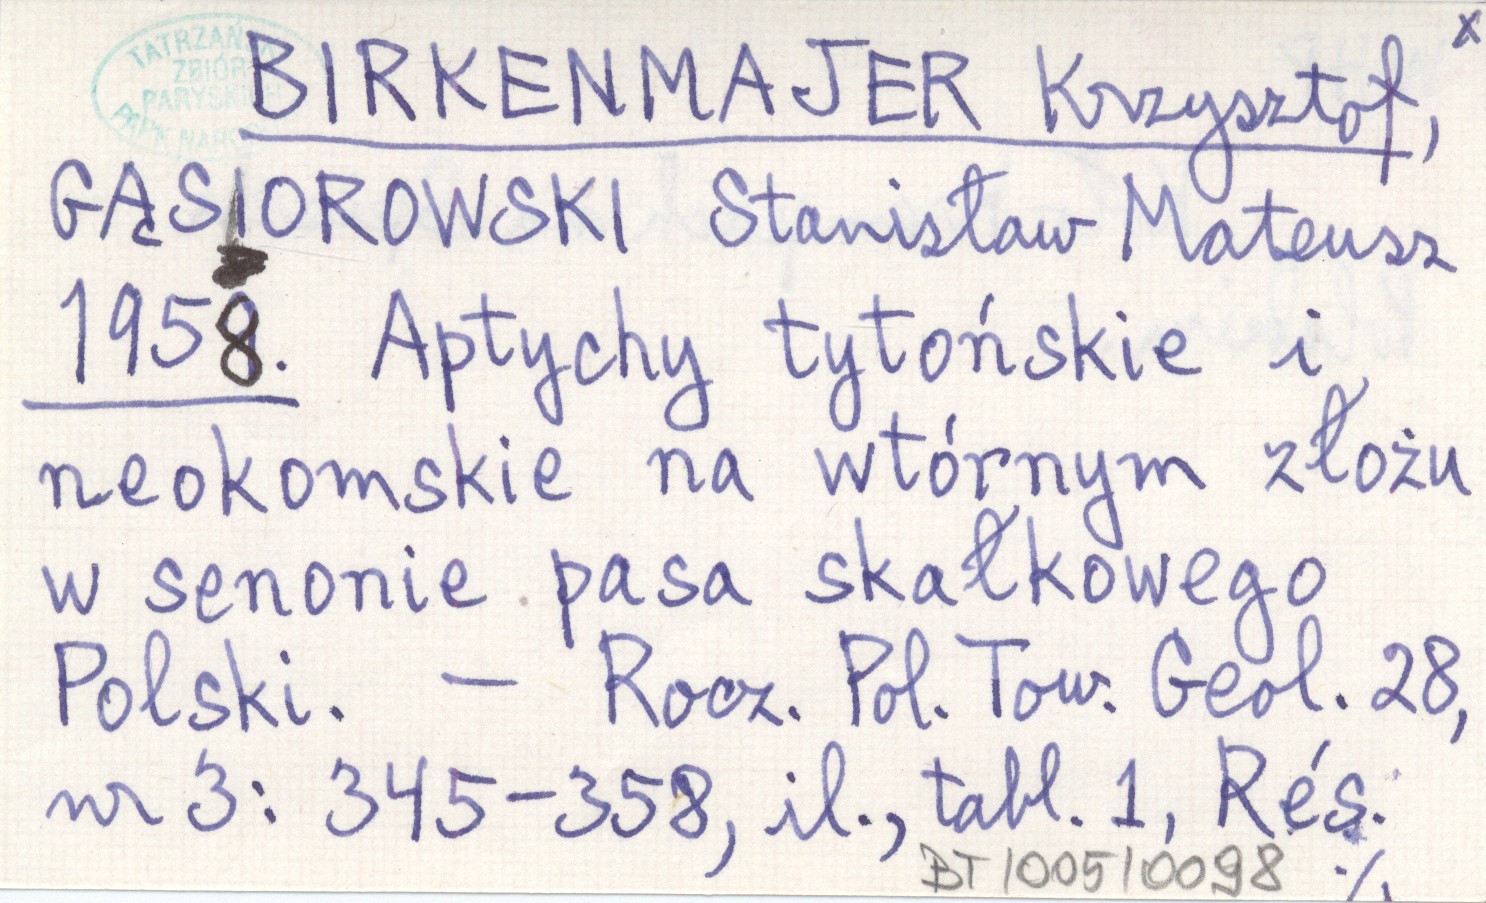 x
TATRZAŃSKI
ZBIÓR
PARYSKICH
PARK NAROD
BIRKENMAJER Krzysztof,
GĄSIOROWSKI Stanisław Mateusz
1958. Aptychy tytońskie i
neokomskie na wtórnym złożu
w senonie pasa skałkowego
Polski. — Rocz. Pol. Tow. Geol. 28,
nr 3: 345-358, il., tabl. 1, Rés.
BT/005/0098 ./.